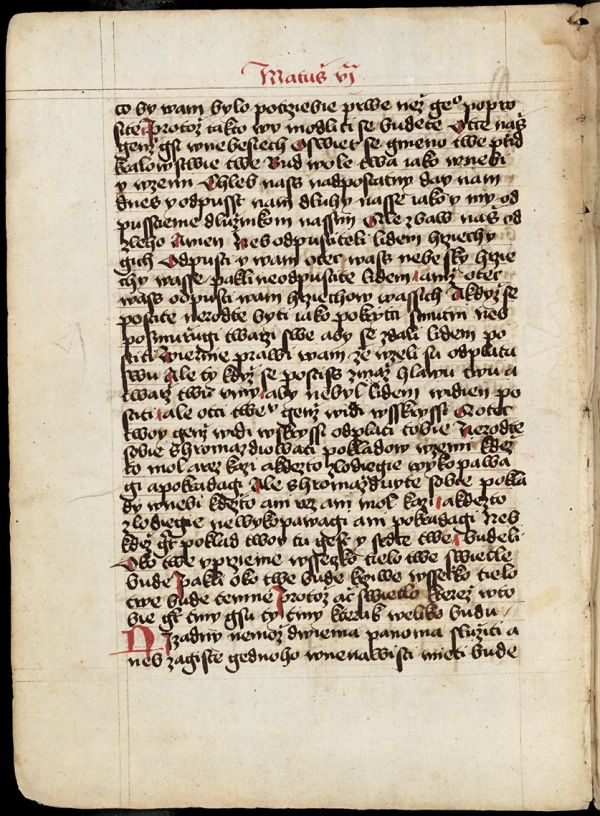 Matuš vj
co by wam bylo potrziebie prwe než geº popro
site Protož takto wy modliti se budete Otcze náš
genž gsi wnebesiech Oswiet se gmeno twe přid
kralowstwie twe Bud wole twa iako wnebi
y wzemi Chleb náss nadpostatny day nam
dnes y odpusst nam dluhy nasse iako y my od
pusstieme dlužnikom nassim Ale zbaw nas od
zleho Amen Neb odpustiteli lidem hrziechy
gich Odpusti y wam otec wass nebesky hrzie
chy wasse pakli neodpustite lidem aniž otec
wass odpusti wam hrziechow wassich A když se
postite nerodte byti iako pokrytci smutni neb
posmurugi twarzi swe aby se zdali lidem po
stiti Wierne prawi wam že wzeli su odplatu
swu Ale ty když se postiss zmaž hlawu twu a
twarz twu umy aby nebyl lidem widien po
stiti ale otci twe genž widi wsskryssi A otec
twoy genž widi wskryssi odplati tobie Nerodte
sobie shromazdiowati pokladow wzemi kdež
to mol a rez kazi a kdezto zlodiegie wykopawa
gi a pokradagi Ale shromazduyte sobie pokla
dy wnebi kdežto ani rez ani mol kazi a kdezto
zlodiegie newykopawagi ani pokradagi Neb
kdež gt poklad twoy tu gest y srdce twe Budeli
Oko twe vprzieme wsseczko tielo twe swietle
bude Pakli oko twe bude krziwe wsseczko tielo
twe bude temne Protož ač swietlo kterež wto
bie gt tmy gsu ty tmy kterak weliké budu
Nizadny nemož dwiema panoma slúžiti a
neb zagiste gednoho wnenawisti mieti bude